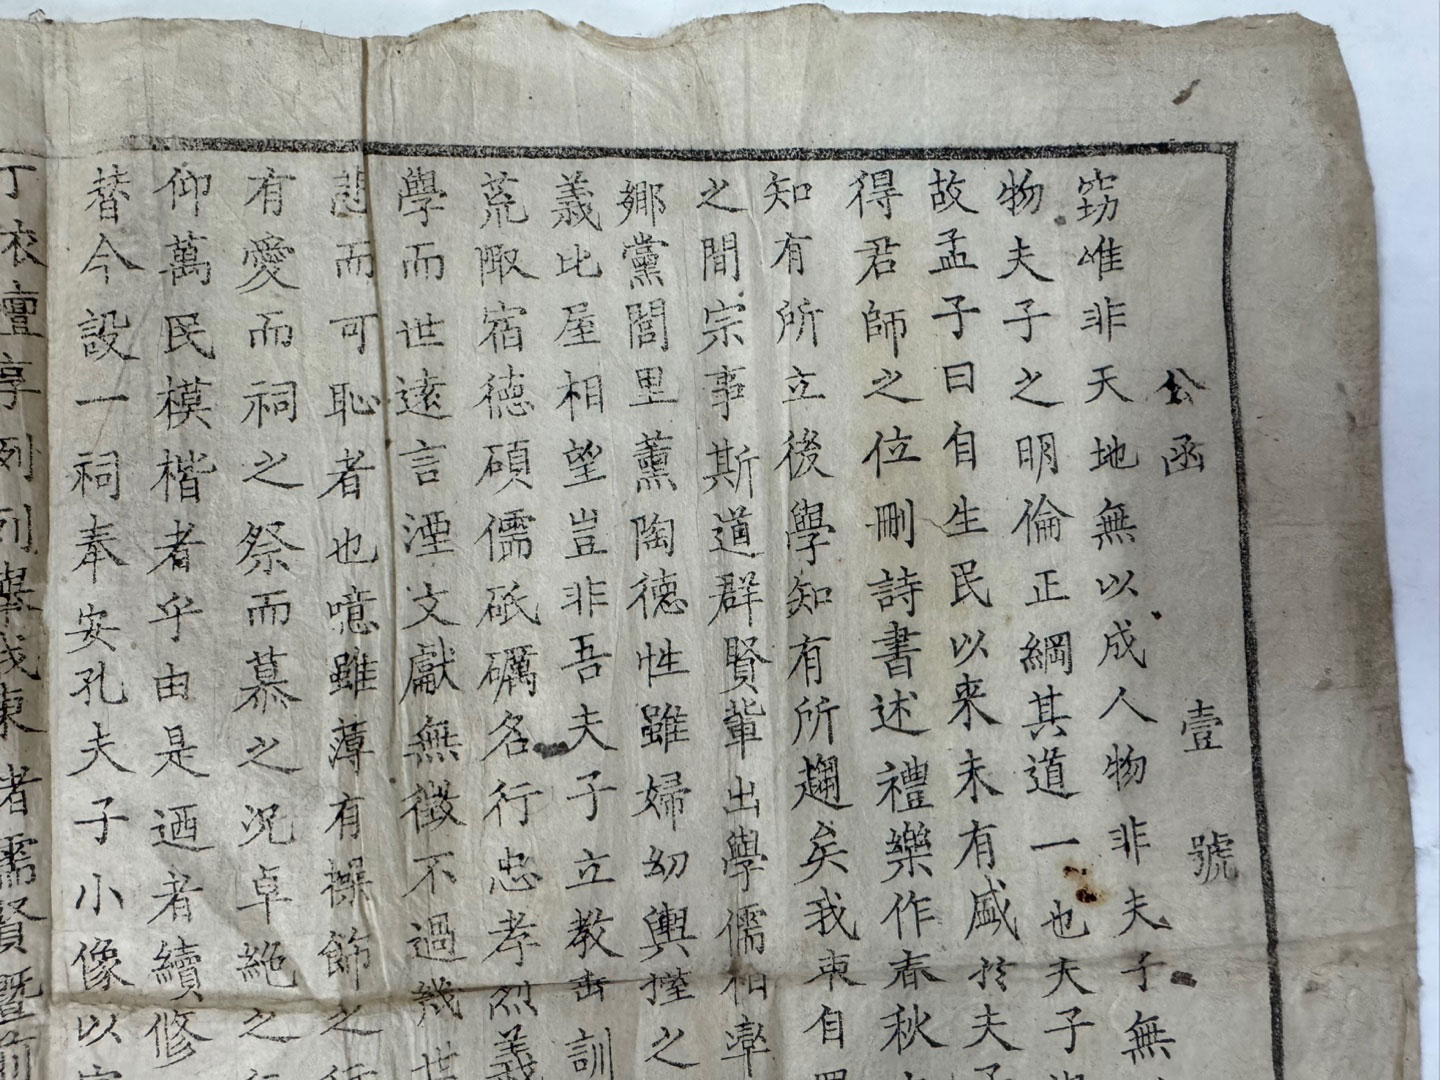 公函 壹號
窃惟非天地無以成人物非夫子無
物夫子之明倫正綱其道一也夫子
故孟子曰自生民以来未有盛扵夫子
得君師之位刪詩書述禮樂作春秋
知有所立後學知有所趨矣我東自
之間宗事斯道群賢輩出學儒和率
鄕黨閭里薰陶德性雖婦幼輿儓之
義比屋相望豈非吾夫子立教垂訓
荒陬宿德碩儒砥礪名行忠孝烈義
學而世遠言湮文獻無徵不過幾世
悲而可恥者也噫雖薄有操飭之行
有愛而祠之祭而慕之況卓絶之行
仰萬民模楷者乎由是迺者續修
替今設一祠奉安孔夫子小像以
丁依壇享列列 者儒賢曁前